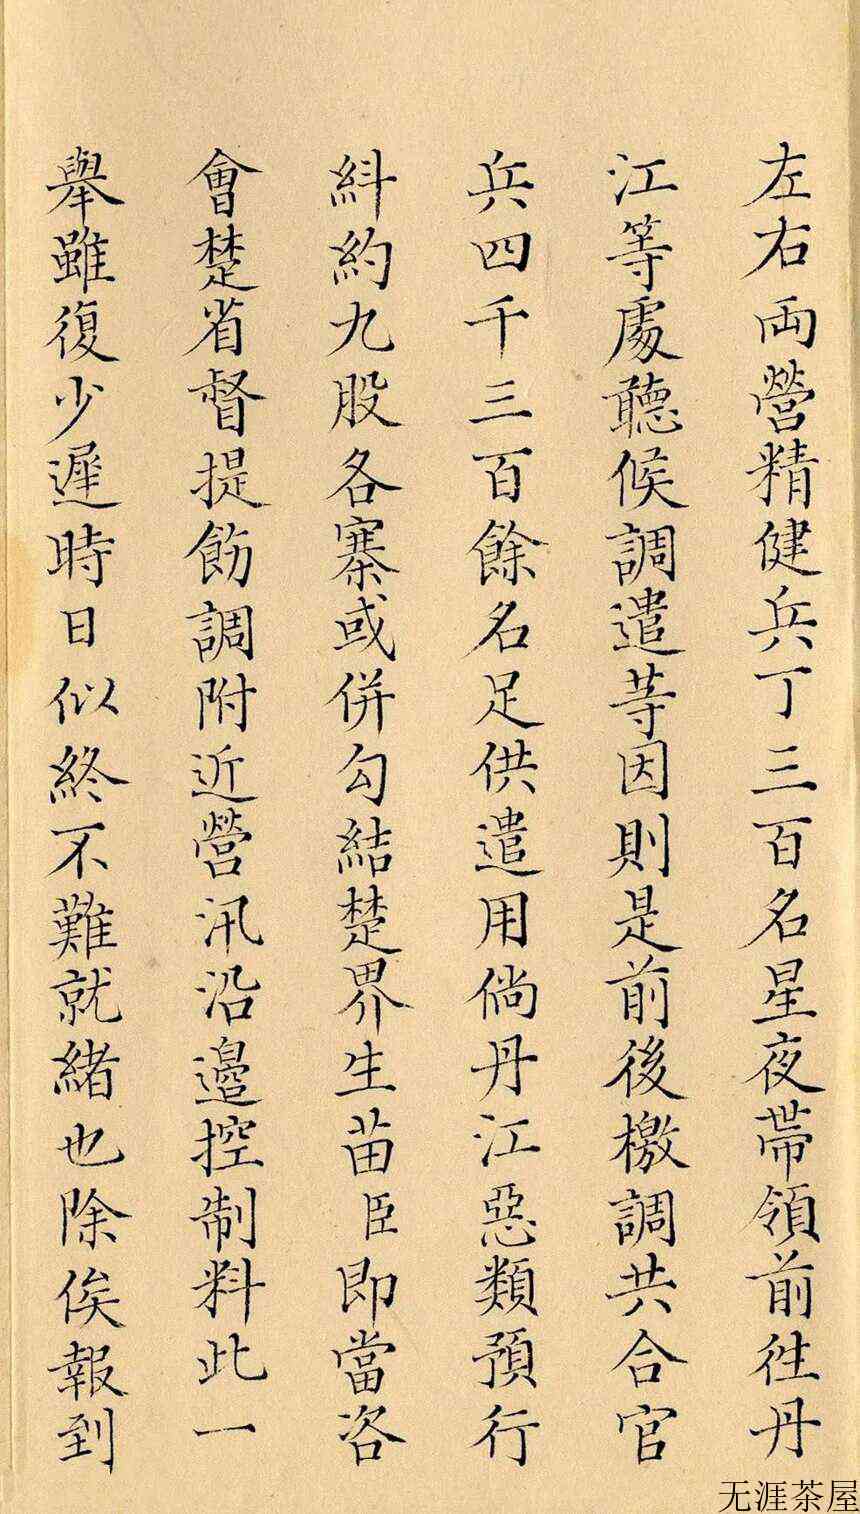 左右両營精健兵丁三百名星夜帯領前徃丹
江等處聽候調遣等因則是前後檄調共合官
兵四千三百餘名足供遣用倘丹江惡類預行
糾約九股各寨或併勾結楚界生苗臣即當咨
會楚省督提飭調附近營汛沿邉控制料此一
舉雖復少遲時日似終不難就緒也除俟報到
无涯茶屋